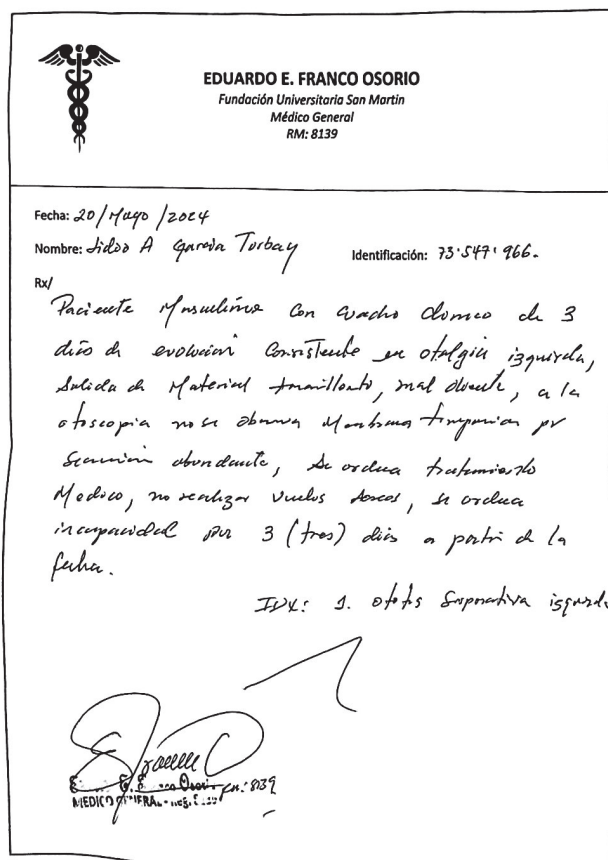 EDUARDO E. FRANCO OSORIO
Fundación Universitaria San Martin
Médico General
RM: 8139
Fecha: 20/Mayo/2024
Nombre: A Garcia Turbay Identificación: 73'547'966.
Rx/
Paciente Masculino con cuadro clinico de 3
dias de evolucion consistente en otalgia izquierda,
salida de Material Amarillento, mal oliente, a la
otoscopia no se observa Membrana timpanica por
secrecion abundante, se ordena tratamiento
Medico, no realizar vuelos aereos, se ordena
incapacidad por 3 (tres) dias a partir de la
fecha.
IDX: 1. otitis Supurativa izquierda
Franco O
E. Franco Osorio RM: 8139
MEDICO GENERAL - Reg.